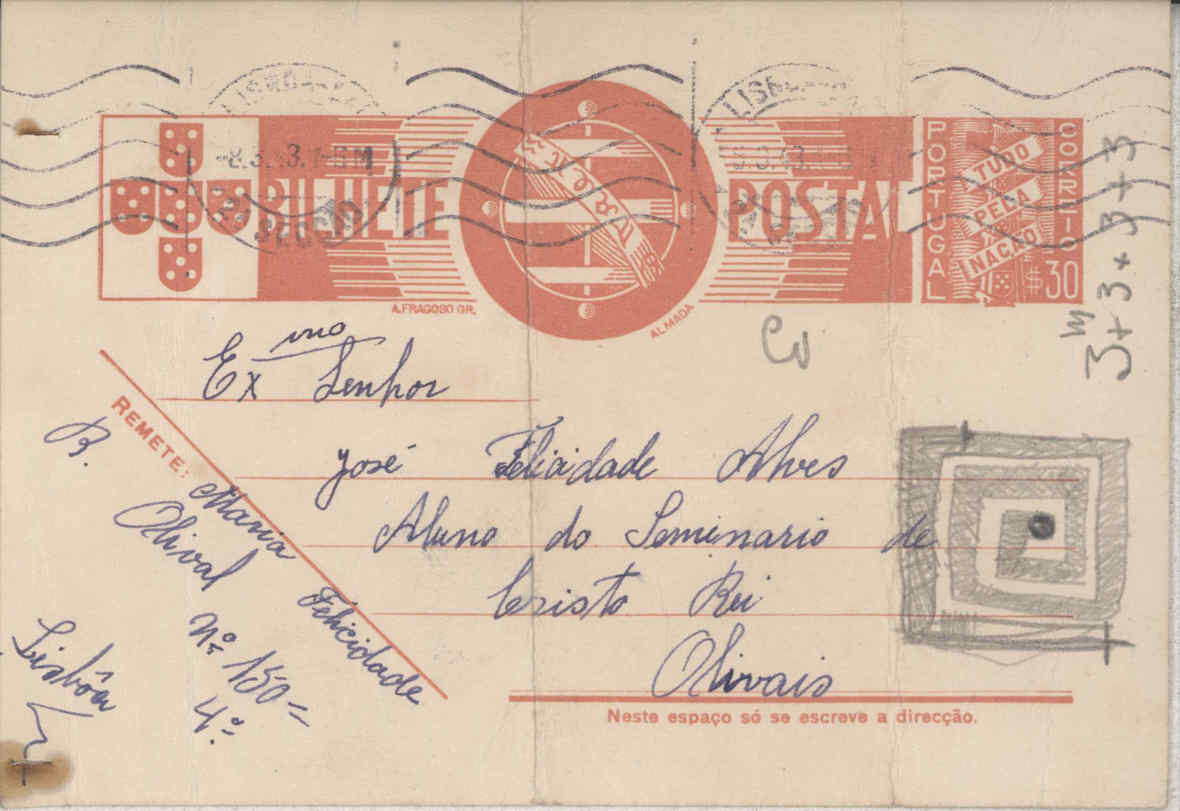 BILHETE POSTAL
PORTUGAL
CORREIO
TUDO
PELA
NAÇÃO
$30
A. FRAGOSO GR.
ALMADA
LISBOA
LISBOA
3+3+3+3
Exmo Senhor
José Felicidade Alves
Aluno do Seminario de
Cristo Rei
Olivais
Neste espaço só se escreve a direcção.
REMETE: Maria Felicidade
R. Olival nº 150-4.º
Lisbôa